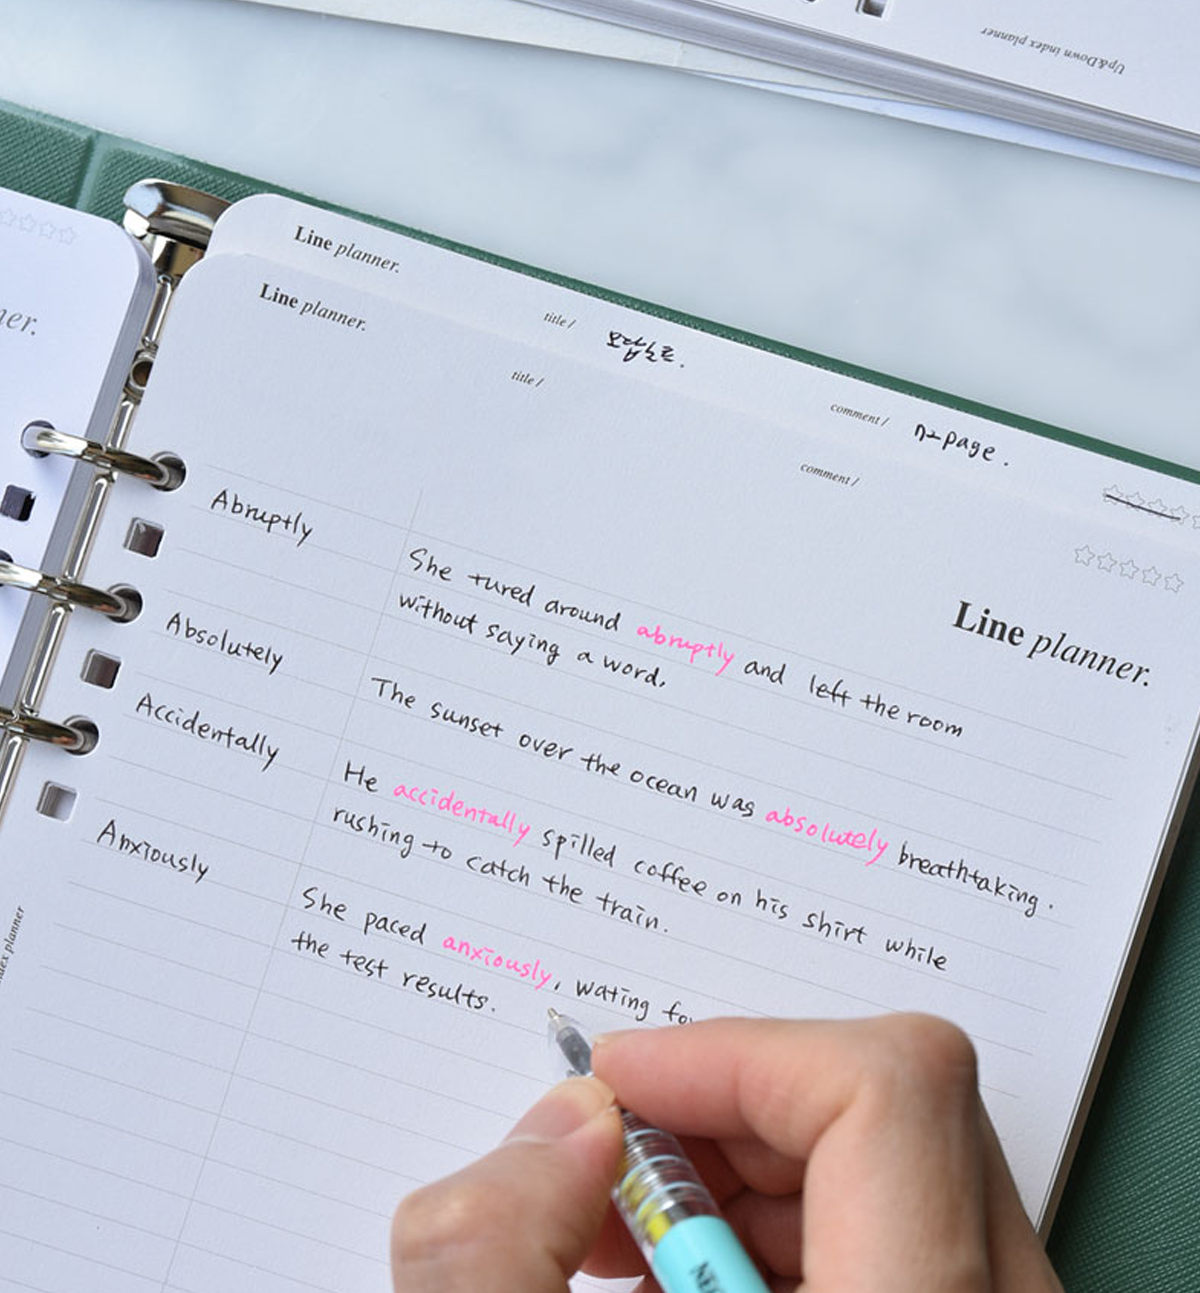 Up&Down index planner
Line planner.
title /
오답노트.
comment /
page.
Line planner.
title /
comment /
Line planner.
Abruptly
She tured around abruptly and left the room
without saying a word.
Absolutely
The sunset over the ocean was absolutely breathtaking.
Accidentally
He accidentally spilled coffee on his shirt while
rushing to catch the train.
Anxiously
She paced anxiously, wating for
the test results.
planner